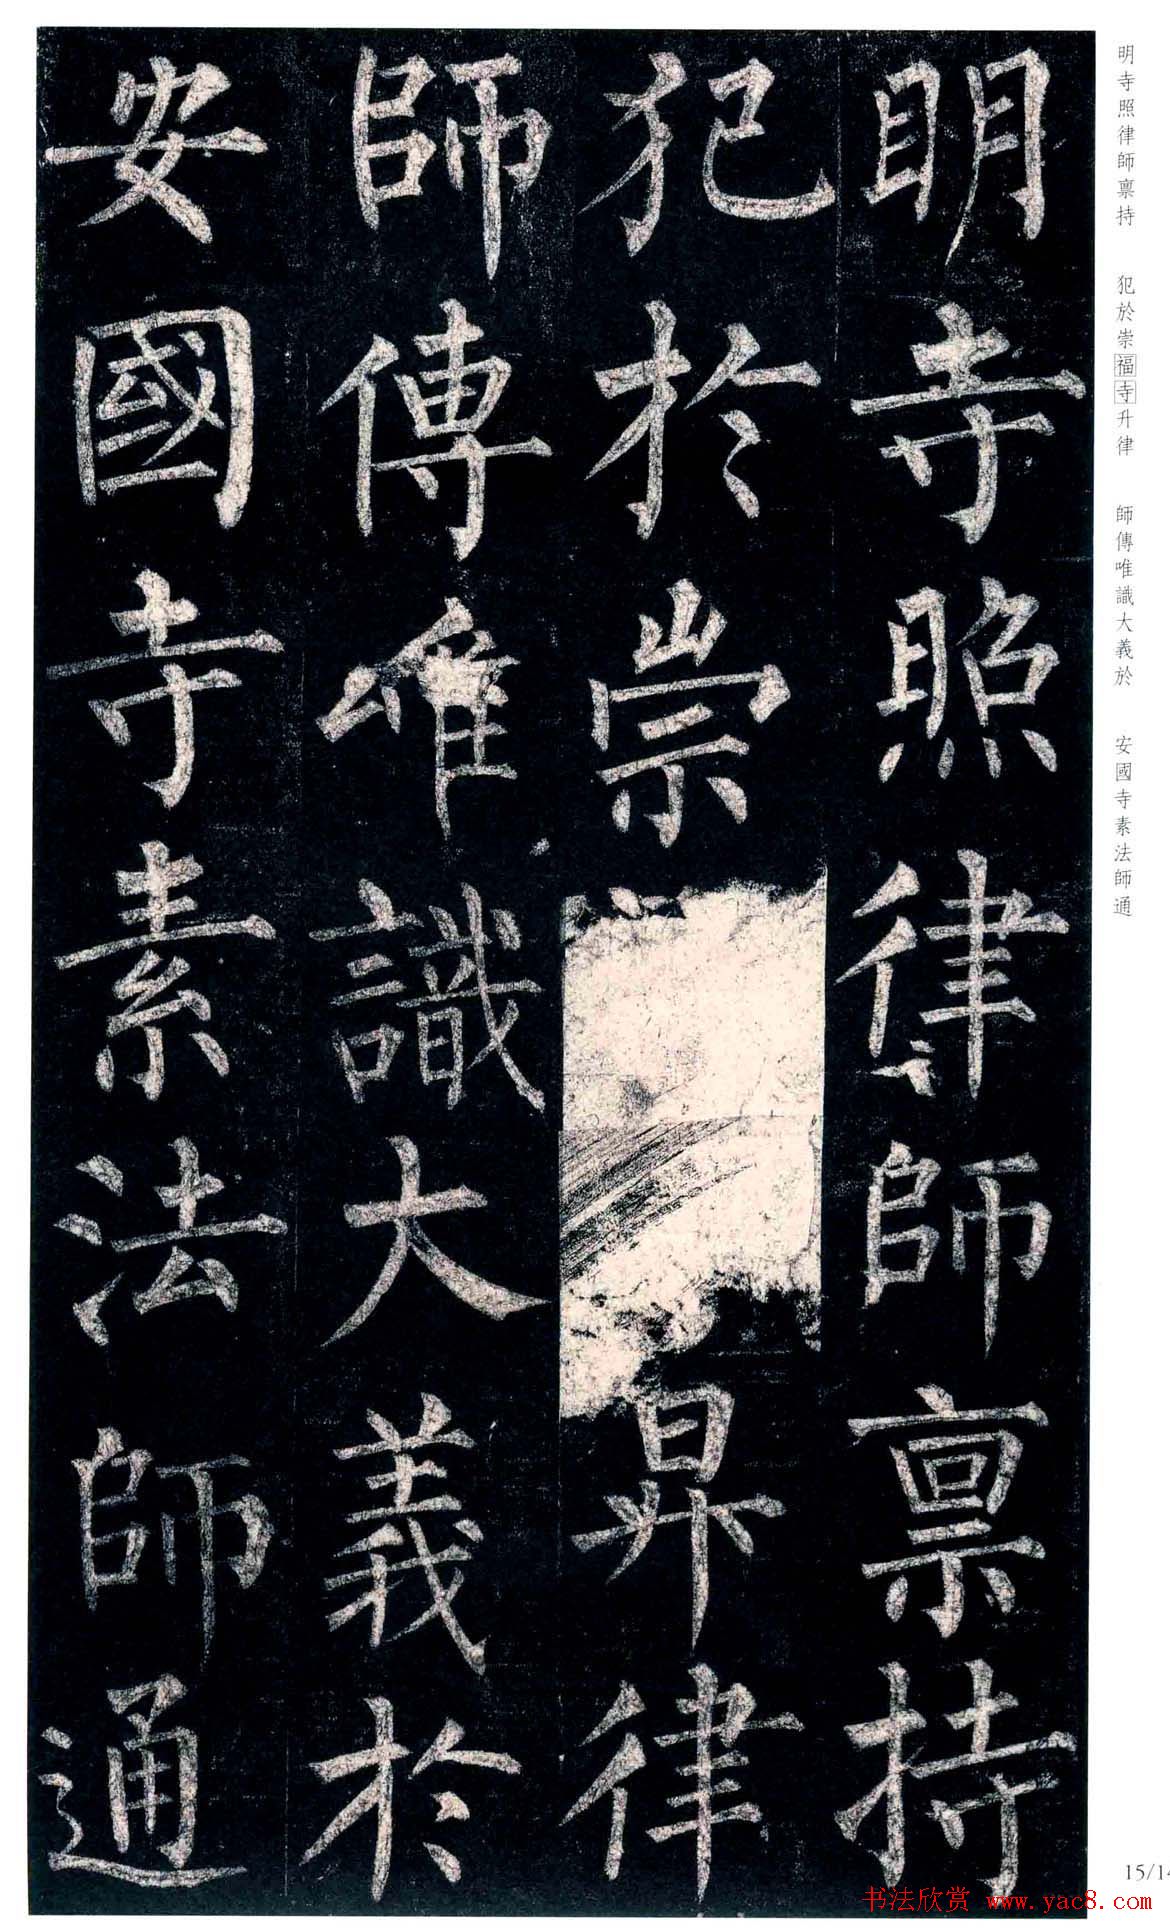 明寺照律師禀持
犯於崇昇律
師傳唯識大義於
安國寺素法師通
明寺照律師禀持 犯於崇福寺升律 師傳唯識大義於 安國寺素法師通
15/14
书法欣赏 www.yac8.com